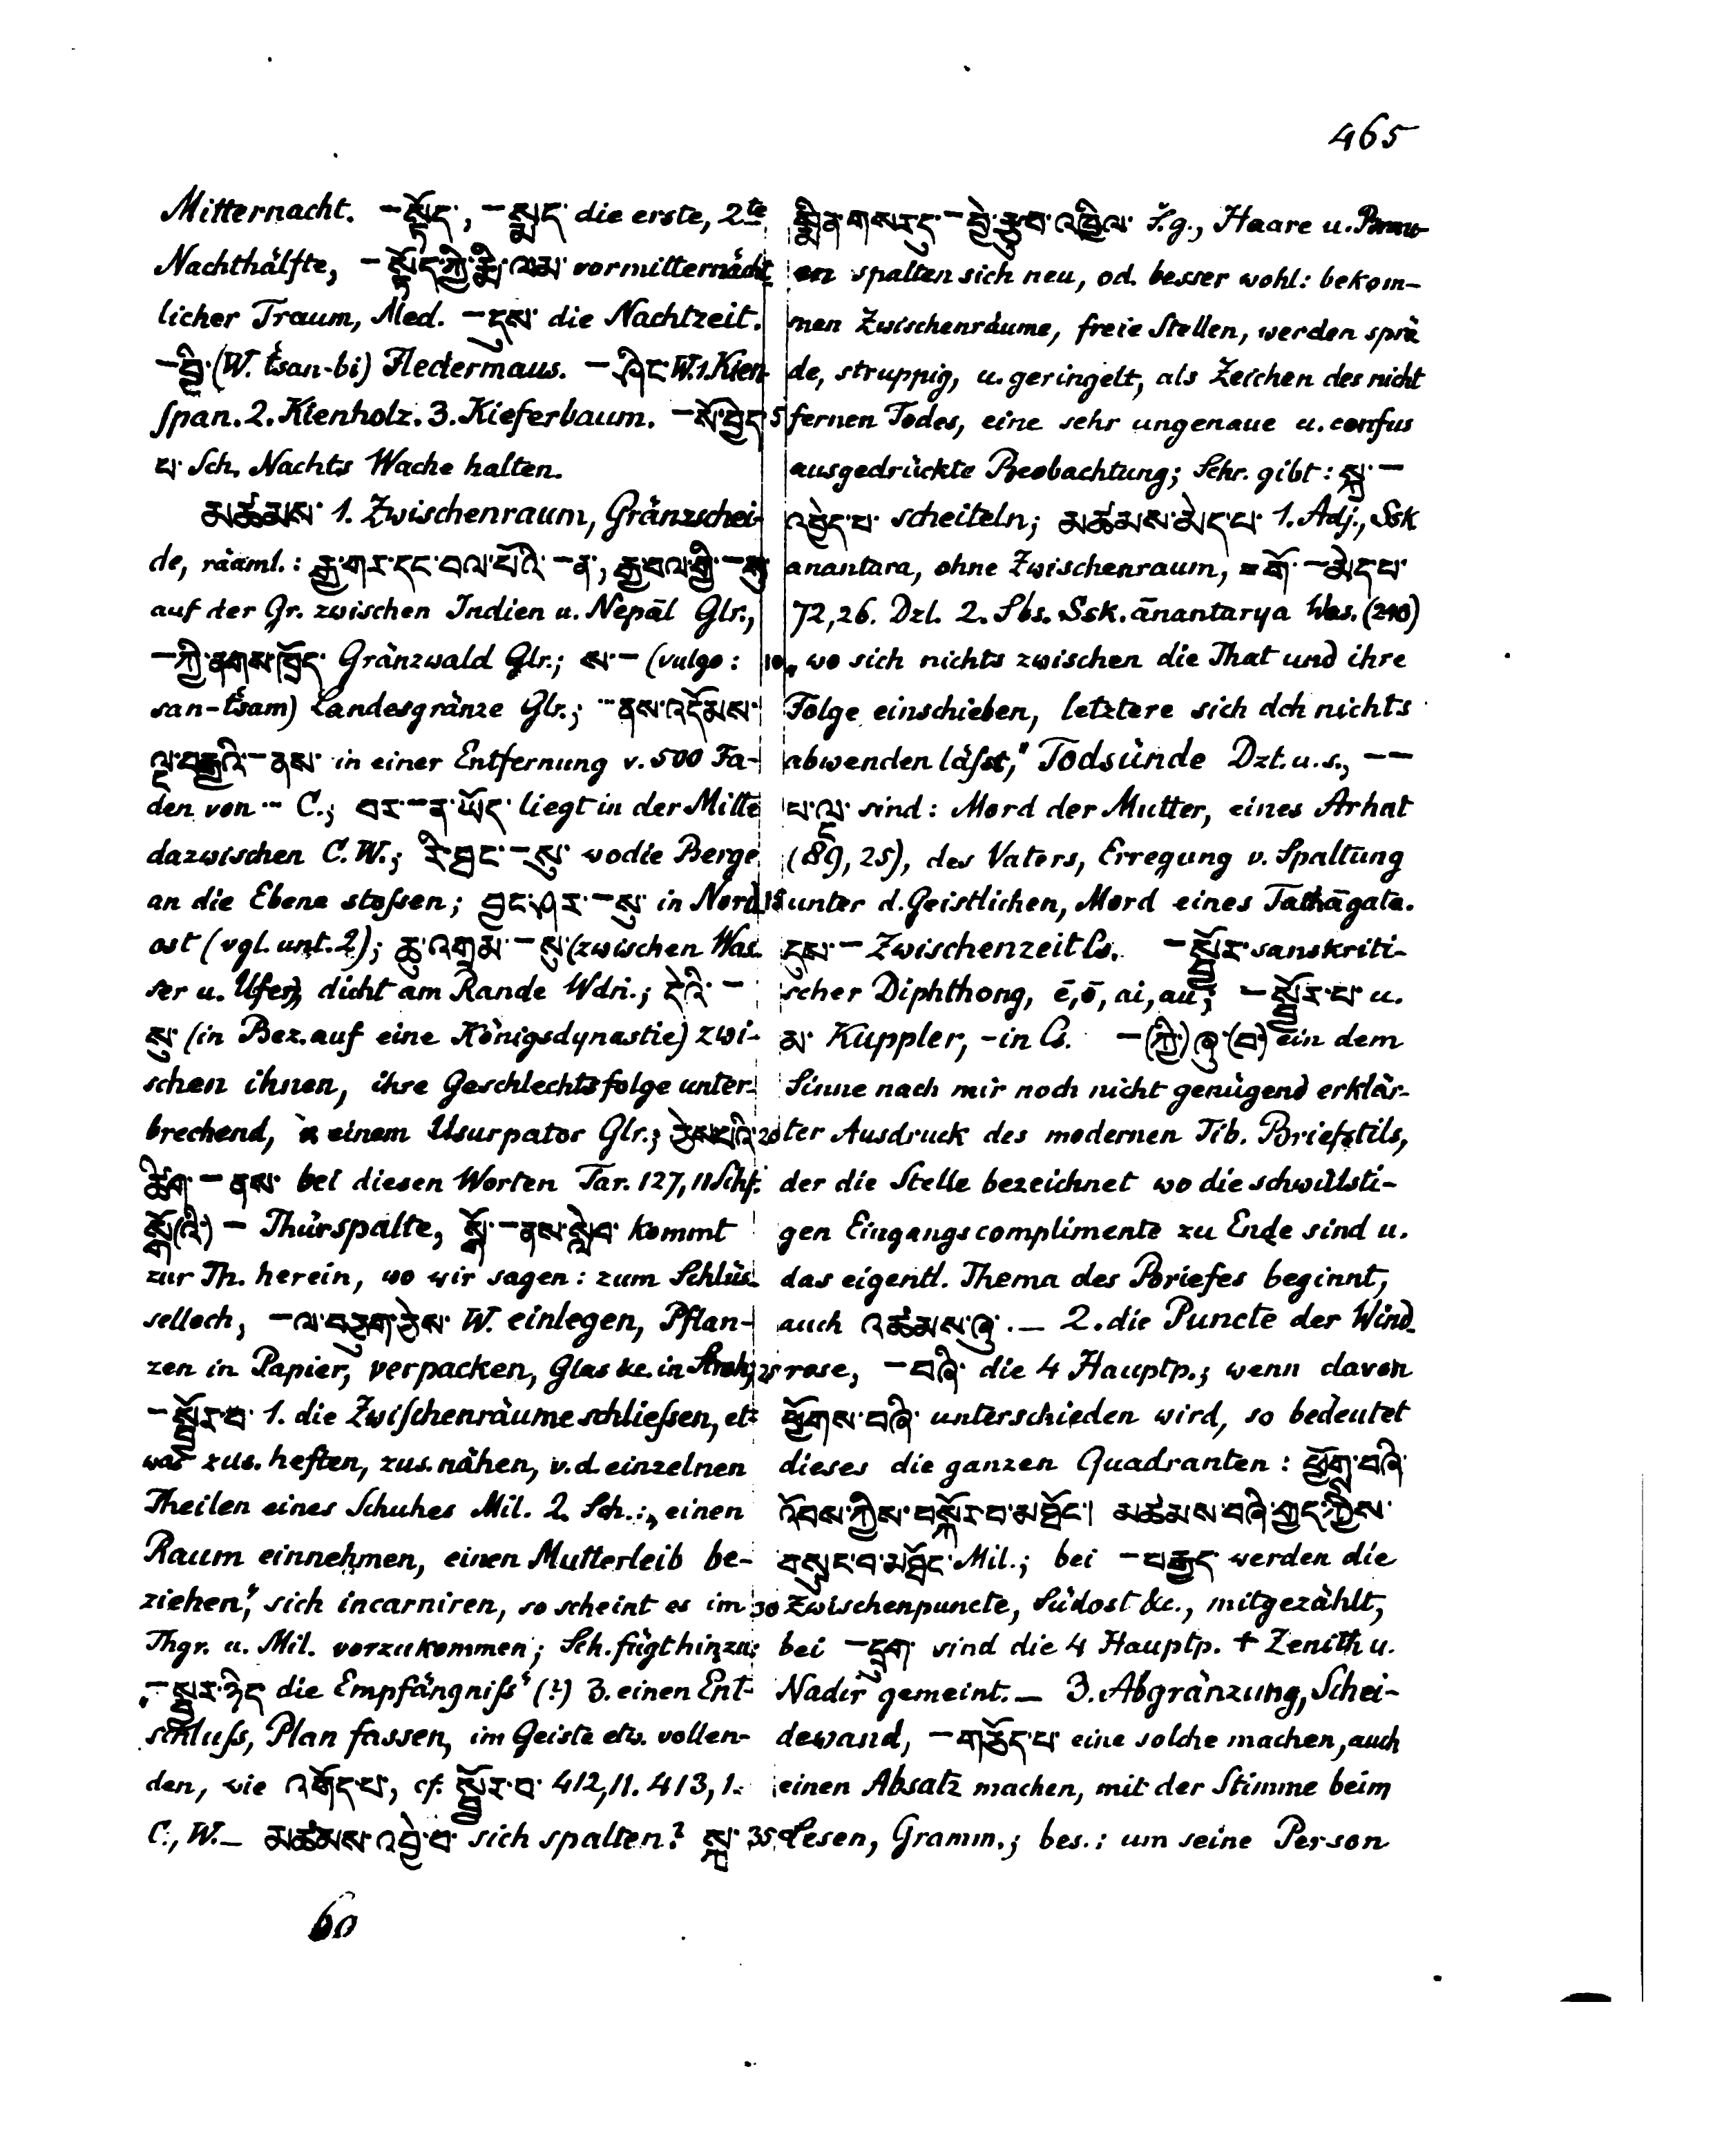 465
Mitternacht. –སྟོད་, –སྨད་ die erste, 2te
Nachthälfte, –སྟོད་ཀྱི་རྨི་ལམ་ vormitternächt
licher Traum, Med. –དུས་ die Nachtzeit.
–བྱི་ (W. tšan-bi) Fledermaus. –ཤིང་ W. 1. Kien
span. 2. Kienholz. 3. Kieferbaum. –སོ་བྱེད་ 5
པ་ Sch. Nachts Wache halten.
མཚམས་ 1. Zwischenraum, Gränzschei-
de, räaml.: རྒྱ་གར་དང་བལ་པོའི་ –ན་, རྒྱ་བལ་གྱི་ –སུ་
auf der Gr. zwischen Indien u. Nepāl Glr.,
–ཀྱི་ནགས་ཁྲོད་ Gränzwald Glr.; ས་– (vulgo: 10
san-tšam) Landesgränze Glr.; ...ནས་འདོམས་
ལྔ་བརྒྱའི་–ནས་ in einer Entfernung v. 500 Fa-
den von ... C.; བར་–ན་ཡོད་ liegt in der Mitte
dazwischen C. W.; རི་ཐང་–སུ་ wo die Berge
an die Ebene stoſsen; བྱང་ཤར་–སུ་ in Nord 15
ost (vgl. unt. 2); ཆུ་འགྲམ་–སུ་ (zwischen Was-
ser u. Ufer), dicht am Rande Wdn.; དེའི་ –
སུ་ (in Bez. auf eine Königsdynastie) zwi-
schen ihnen, ihre Geschlechtsfolge unter-
brechend, einem Usurpator Glr.; ཅེས་པའི་ 20
ཚིག་–ནས་ bei diesen Worten Tar. 127, 11 Schf.
སྒོ(འི་) – Thürspalte, སྒོ་–ནས་སླེབ་ kommt
zur Th. herein, wo wir sagen: zum Schlüs-
selloch, –ལ་བཅུག་ཅེས་ W. einlegen, Pflan-
zen in Papier, verpacken, Glas &c. in Stroh; 25
–སྦྱོར་བ་ 1. die Zwiſchenräume schlieſsen, et-
was zus. heften, zus. nähen, v. d. einzelnen
Theilen eines Schuhes Mil. 2. Sch.: „einen
Raum einnehmen, einen Mutterleib be-
ziehen", sich incarniren, so scheint es im 30
Thgr. u. Mil. vorzukommen; Sch. fügt hinzu:
„–སྦྱར་ཉིད die Empfängniſs" (?) 3. einen Ent-
schluſs, Plan fassen, im Geiste etw. vollen-
den, wie འགོད་པ་, cf. སྦྱོར་བ་ 412, 11. 413, 1.
C., W. – མཚམས་འབྱེ་བ་ sich spalten? སྐྲ་ 35
སྨིན་གསར་དུ་–བྱེ་རྩུབ་འཁྱིལ་ S.g., Haare u. Brau-
en spalten sich neu, od. besser wohl: bekom-
men Zwischenräume, freie Stellen, werden sprö
de, struppig, u. geringelt, als Zeichen des nicht
fernen Todes, eine sehr ungenaue u. confus
ausgedrückte Beobachtung; Schr. gibt: སྐྲ་ –
འབྱེད་པ་ scheiteln; མཚམས་མེད་པ་ 1. Adj., Ssk
anantara, ohne Zwischenraum, གོ་ –མེད་པ་
72, 26. Dzl. 2. Sbs. Ssk. ānantarya Was. (240)
„wo sich nichts zwischen die That und ihre
Folge einschieben, letztere sich dch nichts
abwenden läſst," Todsünde Dzl. u. s., – –
པ་ལྔ་ sind: Mord der Mutter, eines Arhat
(89, 25), des Vaters, Erregung v. Spaltung
unter d. Geistlichen, Mord eines Tathāgata.
དུས་– Zwischenzeit Cs. –སྦྱོར་ sanskriti-
scher Diphthong, ē, ō, ai, au; –སྦྱོར་པ་ u.
མ་ Kuppler, -in Cs. –(ཀྱི་) ཞུ་ (བ་) ein dem
Sinne nach mir noch nicht genügend erklär-
ter Ausdruck des modernen Tib. Briefstils,
der die Stelle bezeichnet wo die schwülsti-
gen Eingangscomplimente zu Ende sind u.
das eigentl. Thema des Briefes beginnt,
auch འཚམས་ཞུ་. – 2. die Puncte der Wind-
rose, –བཞི་ die 4 Hauptp.; wenn davon
ཕྱོགས་བཞི་ unterschieden wird, so bedeutet
dieses die ganzen Quadranten: ཕྱོགས་བཞི་
འོབས་ཀྱིས་བསྐོར་བ་མཐོང་། མཚམས་བཞི་གྱད་ཀྱིས་
བསྲུང་བ་མཐོང་ Mil.; bei –བརྒྱད་ werden die
Zwischenpuncte, Südost &c., mitgezählt,
bei –དྲུག་ sind die 4 Hauptp. + Zenith u.
Nadir gemeint. – 3. Abgränzung, Schei-
dewand, –གཅོད་པ་ eine solche machen, auch
einen Absatz machen, mit der Stimme beim
Lesen, Gramm.; bes.: um seine Person
60